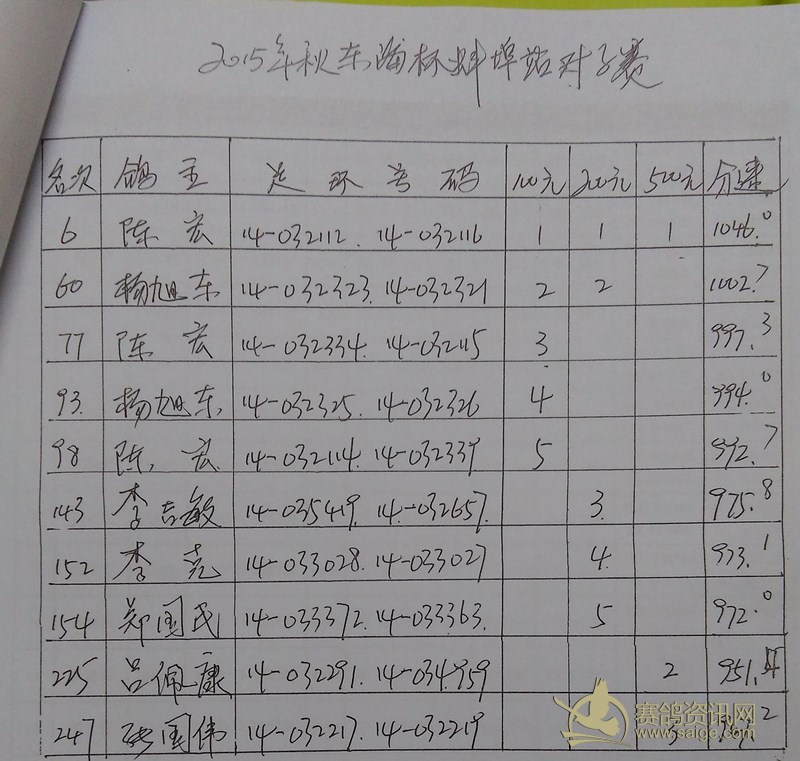 2015年秋东瀚杯蚌埠站对子赛
名次 鸽主 足环号码 100元 200元 500元 分速
6 陈宏 14-032112. 14-032116 1 1 1 1046.0
60 杨旭东 14-032323. 14-032321 2 2 1002.7
77 陈宏 14-032334. 14-032115 3 997.3
93. 杨旭东 14-032325. 14-032326 4 994.0
98 陈宏 14-032114. 14-032339 5 992.7
143 李吉敏 14-035419. 14-032657. 3. 975.8
152 李克 14-033028. 14-033027 4. 973.1
154 郑国民 14-033372. 14-033363. 5 972.0
225 吕佩康 14-032291. 14-034959 2 951.
247 张国伟 14-032217. 14-032219 3
赛鸽资讯网
www.saige.com